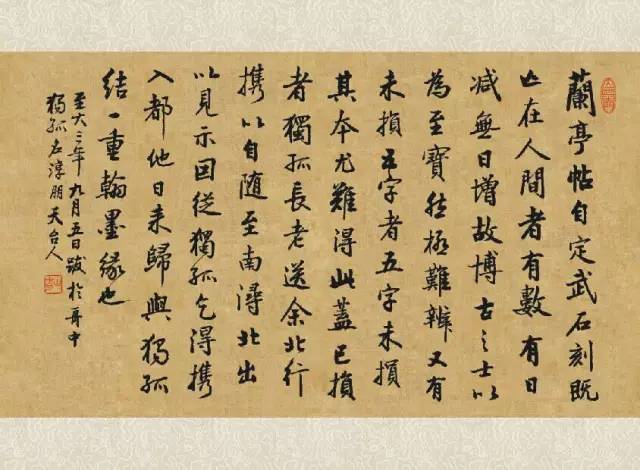 蘭亭帖自定武石刻既
亡在人間者有數有日
减無日增故博古之士以
為至寶然極難辨又有
未損五字者五字未損
其本尤難得此蓋已損
者獨孤長老送余北行
携以自随至南潯北出
以見示因從獨孤乞得携
入都他日来歸與獨孤
結一重翰墨緣也
至大三年九月五日跋於舟中
獨孤名淳朋天台人